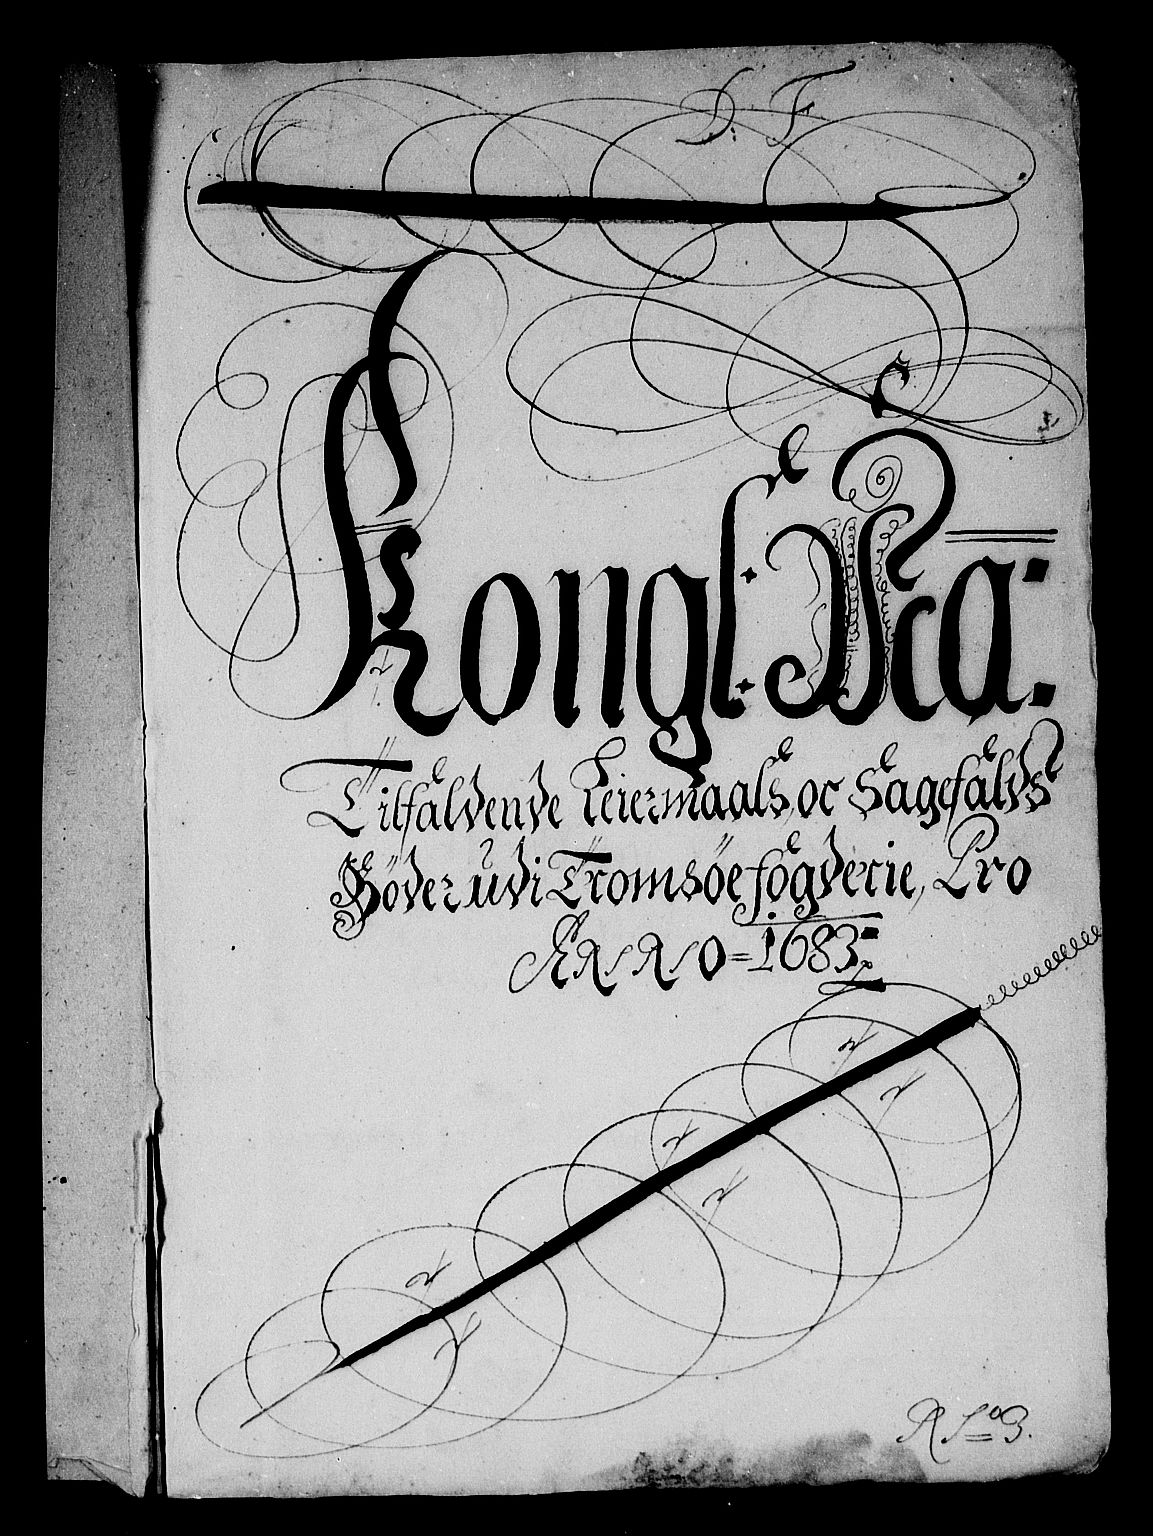 D. F
Kongl: Ma:
Tilfaldende Leiermaals, oc Sagefalds
Böder udi Tromsöe fögderie, Pro
ANNO = 1683: